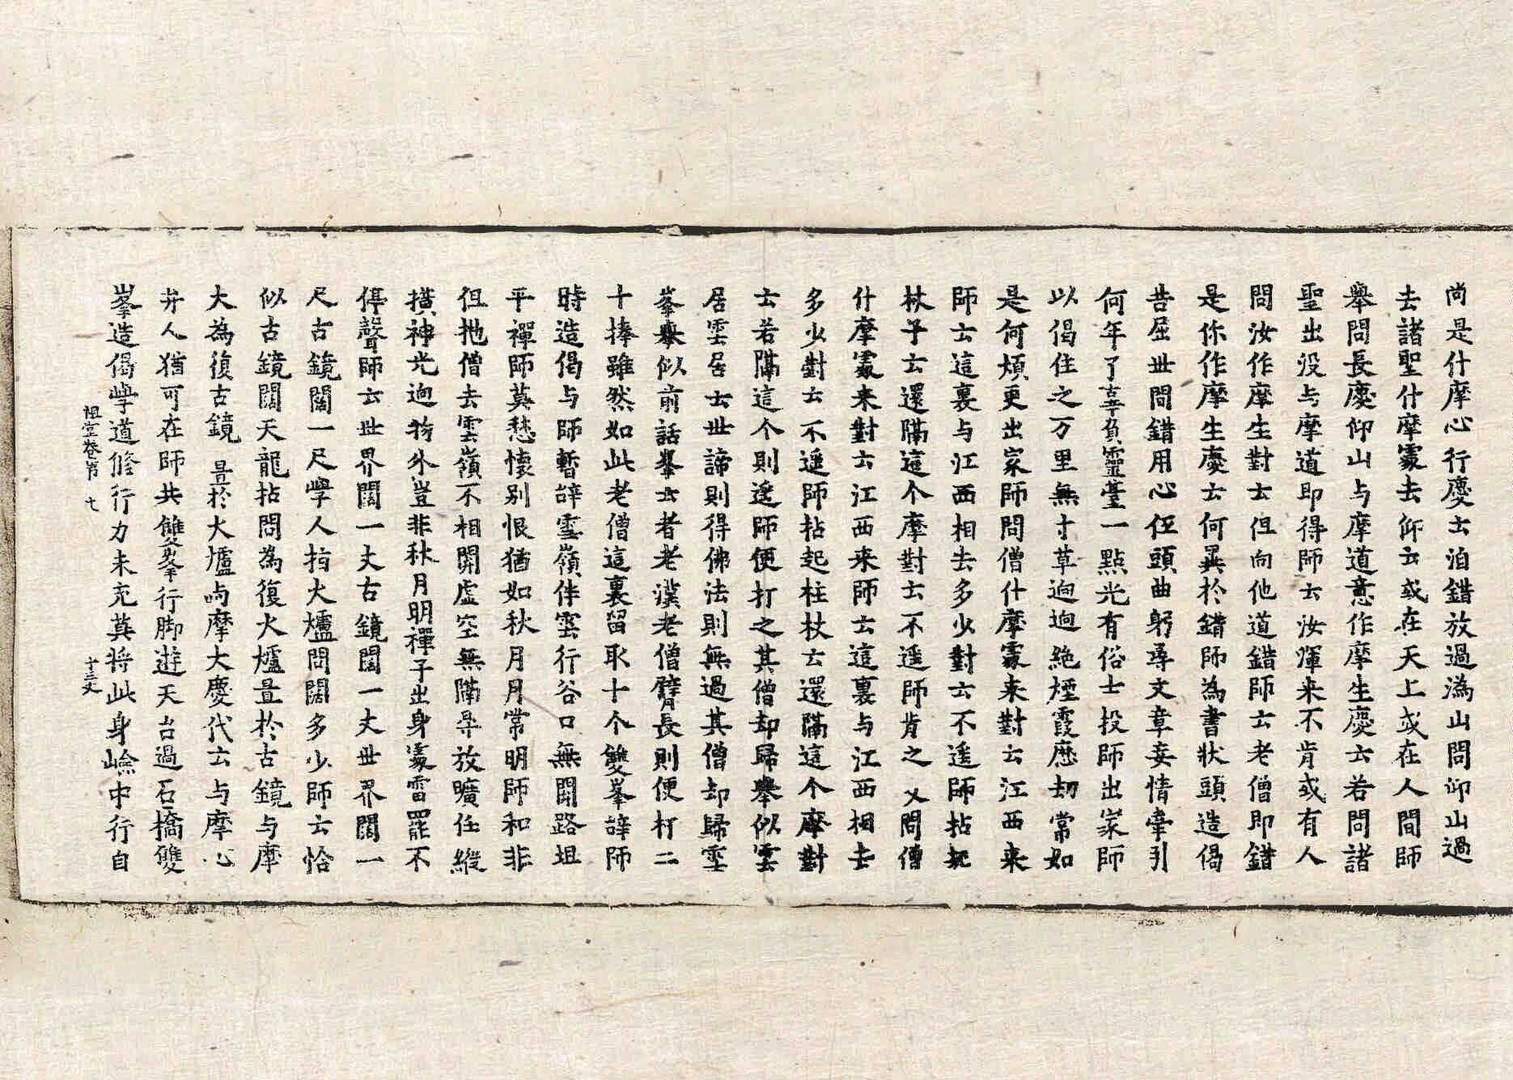 尚是什摩心行慶云洎錯放過溈山問仰山過
去諸聖什摩處去仰云或在天上或在人間師
舉問長慶仰山与摩道意作摩生慶云若問諸
聖出没与摩道即得師云汝渾来不肯或有人
問汝作摩生對云但向他道錯師云老僧即錯
是你作摩生慶云何異於錯師為書狀頭造偈
告屈世問錯用心伍頭曲躬尋文章妄情牽引
何年了辜負靈臺一點光有俗士投師出家師
以偈住之万里無寸草逈逈絶煙霞歷刼常如
是何煩更出家師問僧什摩處来對云江西来
師云這裏与江西相去多少對云不遥師拈起
杖子云還隔這个摩對云不遥師肯之又問僧
什摩處来對云江西来師云這裏与江西相去
多少對云不遥師拈起柱杖云還隔這个摩對
云若隔這个則遥師便打之其僧却歸舉似雲
居雲居云世諦則得佛法則無過其僧却歸雪
峯舉似前話峯云者老漢老僧臂長則便打二
十捧雖然如此老僧這裏留取十个雙峯辝師
時造偈与師暫辝雪嶺伴雲行谷口無關路坦
平禪師莫愁懷别恨猶如秋月月常明師和非
但抛僧去雲嶺不相關虚空無隔㝵放曠任縱
横神光逈物外豈非秋月明禪子出身處雷罷不
停聲師云世界闊一丈古鏡闊一丈世界闊一
尺古鏡闊一尺學人指火爐問闊多少師云恰
似古鏡闊天龍拈問為復火爐置於古鏡与摩
大為復古鏡置於火爐与摩大慶代云与摩心
弁人猶可在師共雙峯行脚遊天台過石橋雙
峯造偈學道修行力未充莫将此身嶮中行自
祖堂卷第七 十三丈